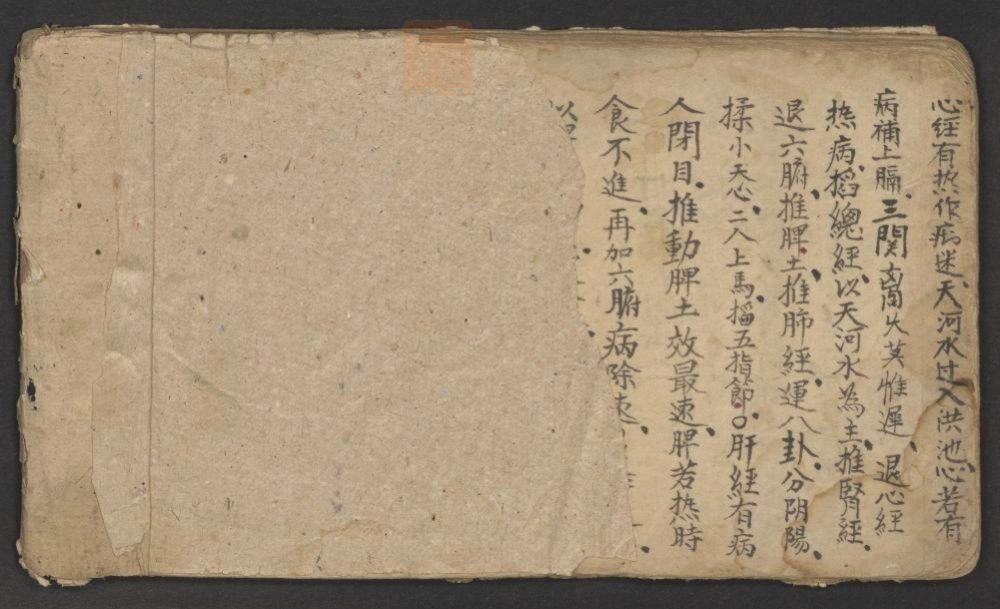 心經有热作痴迷天河水过入洪池心若有
病補上膈三関離火莫惟遲 退心經
热病掐總經以天河水為主推腎經
退六腑推脾土推肺經運八卦分阴陽
揉小天心二人上馬掐五指節〇肝經有病
人閉目推動脾土效最速脾若热時
食不進再加六腑病除速
以